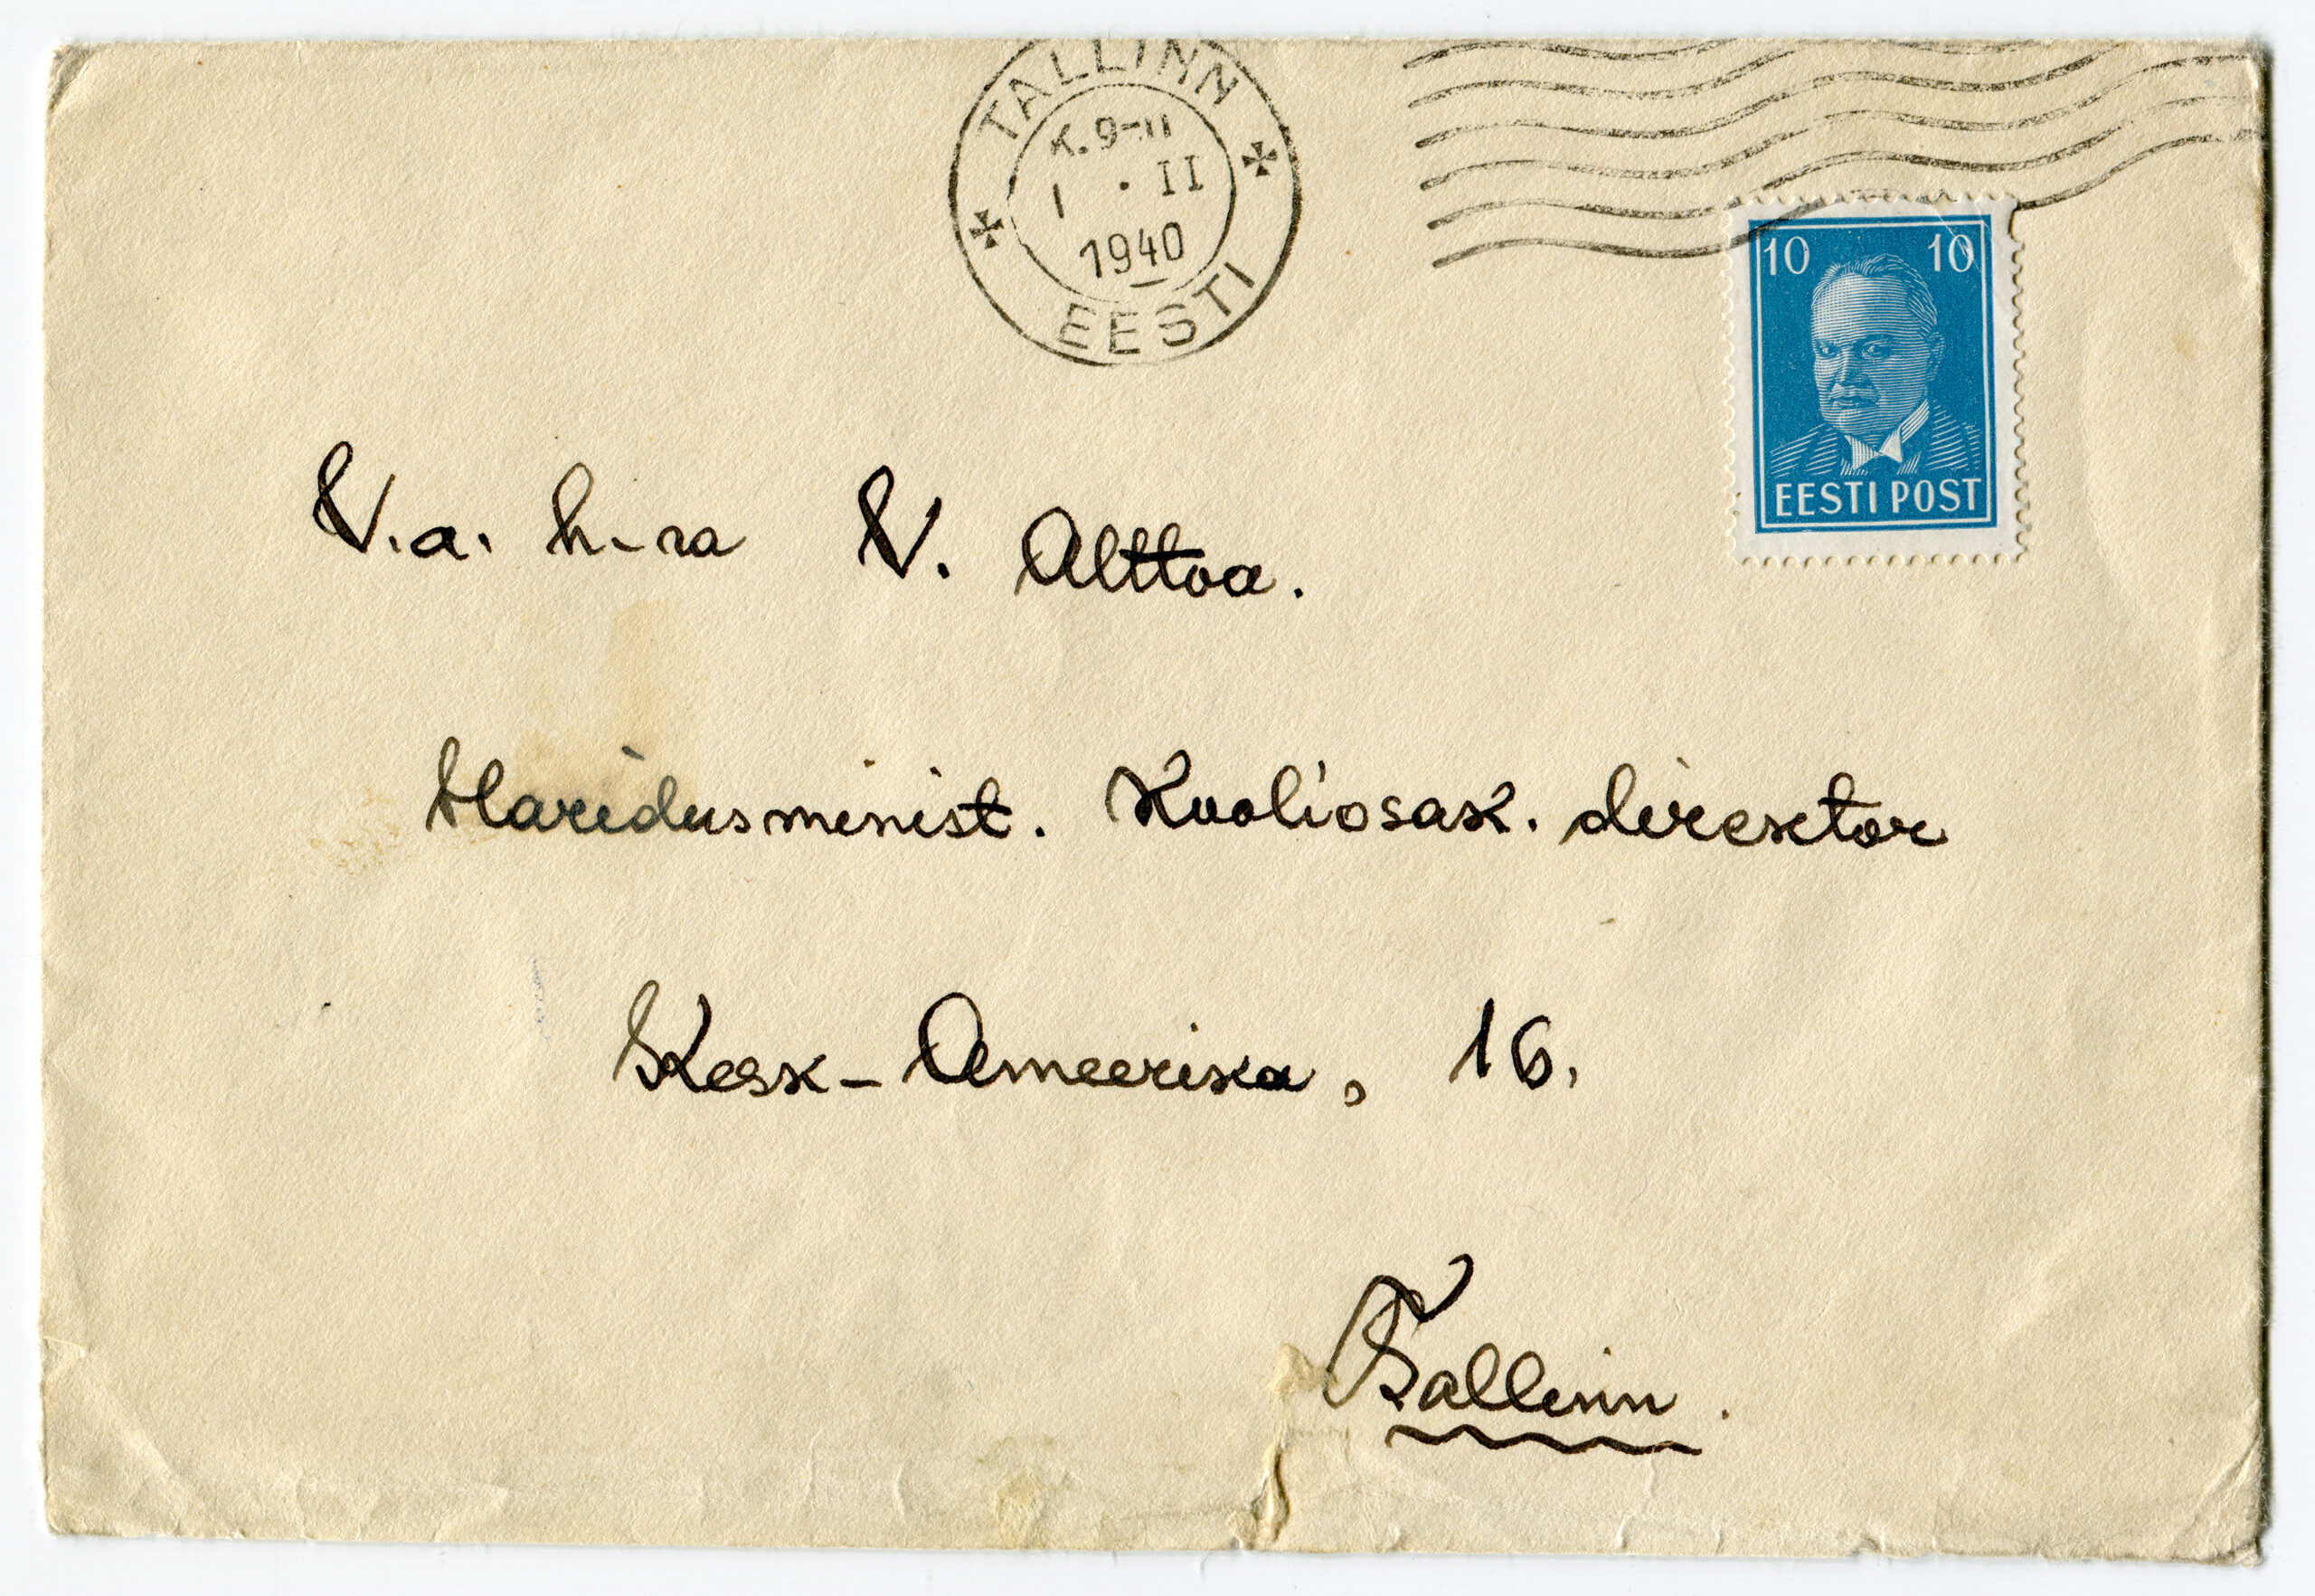 TALLINN
K. 9-11
1 . II
1940
EESTI
10 10
EESTI POST
V.a. h-ra V. Alttoa.
Haridusminist. Kooliosak. direktor
Kesk-Ameerika, 16.
Tallinn.